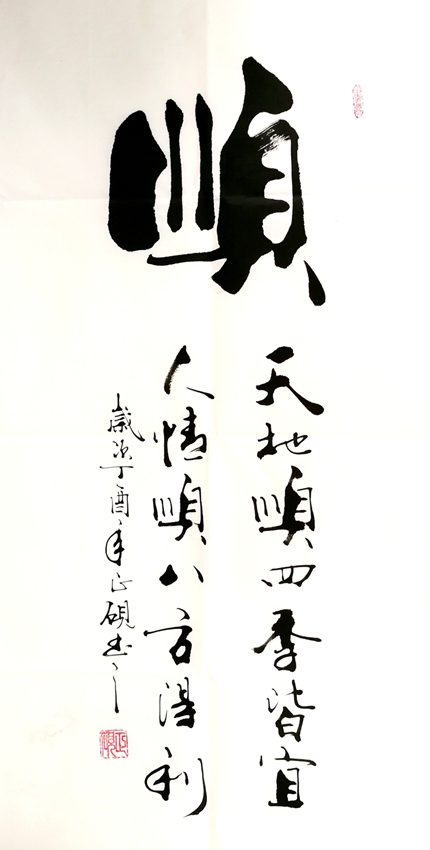 順
天地順四季皆宜
人情順八方得利
歲次丁酉年正硯書之